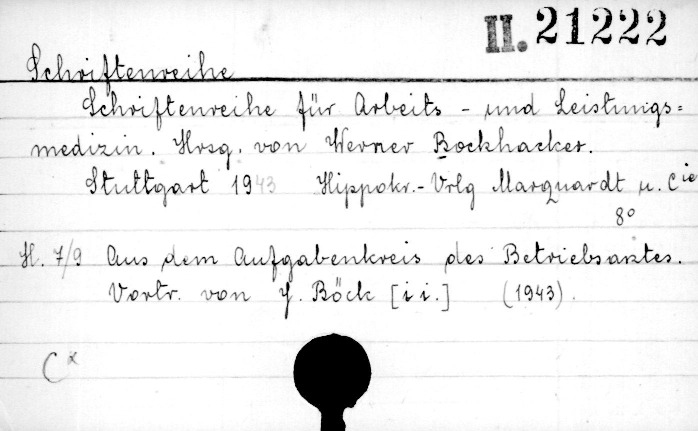 II. 21222
Schriftenreihe
Schriftenreihe für Arbeits- und Leistungs=
medizin. Hrsg. von Werner Bockhacker.
Stuttgart 1943 Hippokr.-Vrlg Marquardt u. Cie
8°
H. 7/9 Aus dem Aufgabenkreis des Betriebsarztes.
Vortr. von J. Böck [i i.] (1943).
C x